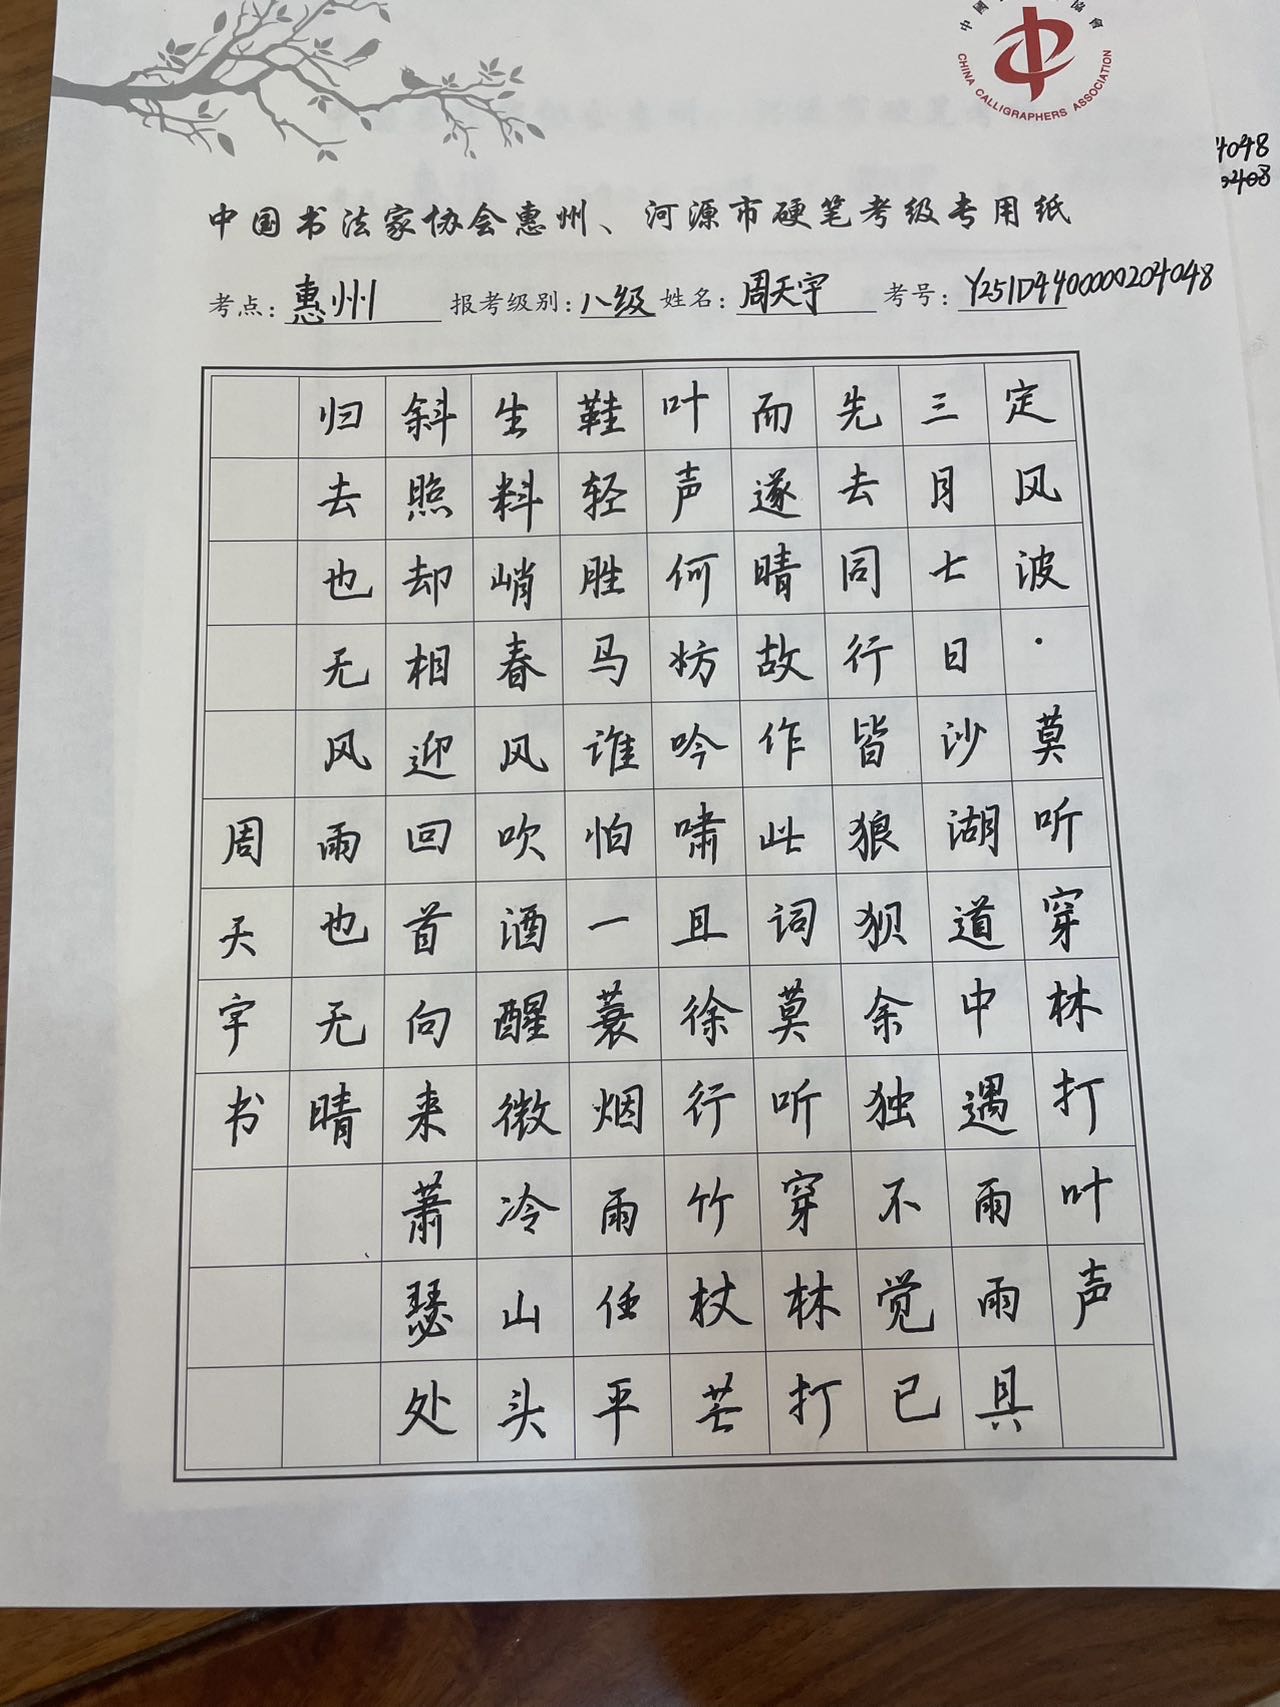 CHINA CALLIGRAPHERS ASSOCIATION
4048
中国书法家协会惠州、河源市硬笔考级专用纸
考点：惠州 报考级别：八级 姓名：周天宇 考号：Y251D4400000204048
定风波·莫听穿林打叶声
三月七日沙湖道中遇雨雨具
先去同行皆狼狈余独不觉已
而遂晴故作此词莫听穿林打
叶声何妨吟啸且徐行竹杖芒
鞋轻胜马谁怕一蓑烟雨任平
生料峭春风吹酒醒微冷山头
斜照却相迎回首向来萧瑟处
归去也无风雨也无晴
周天宇书